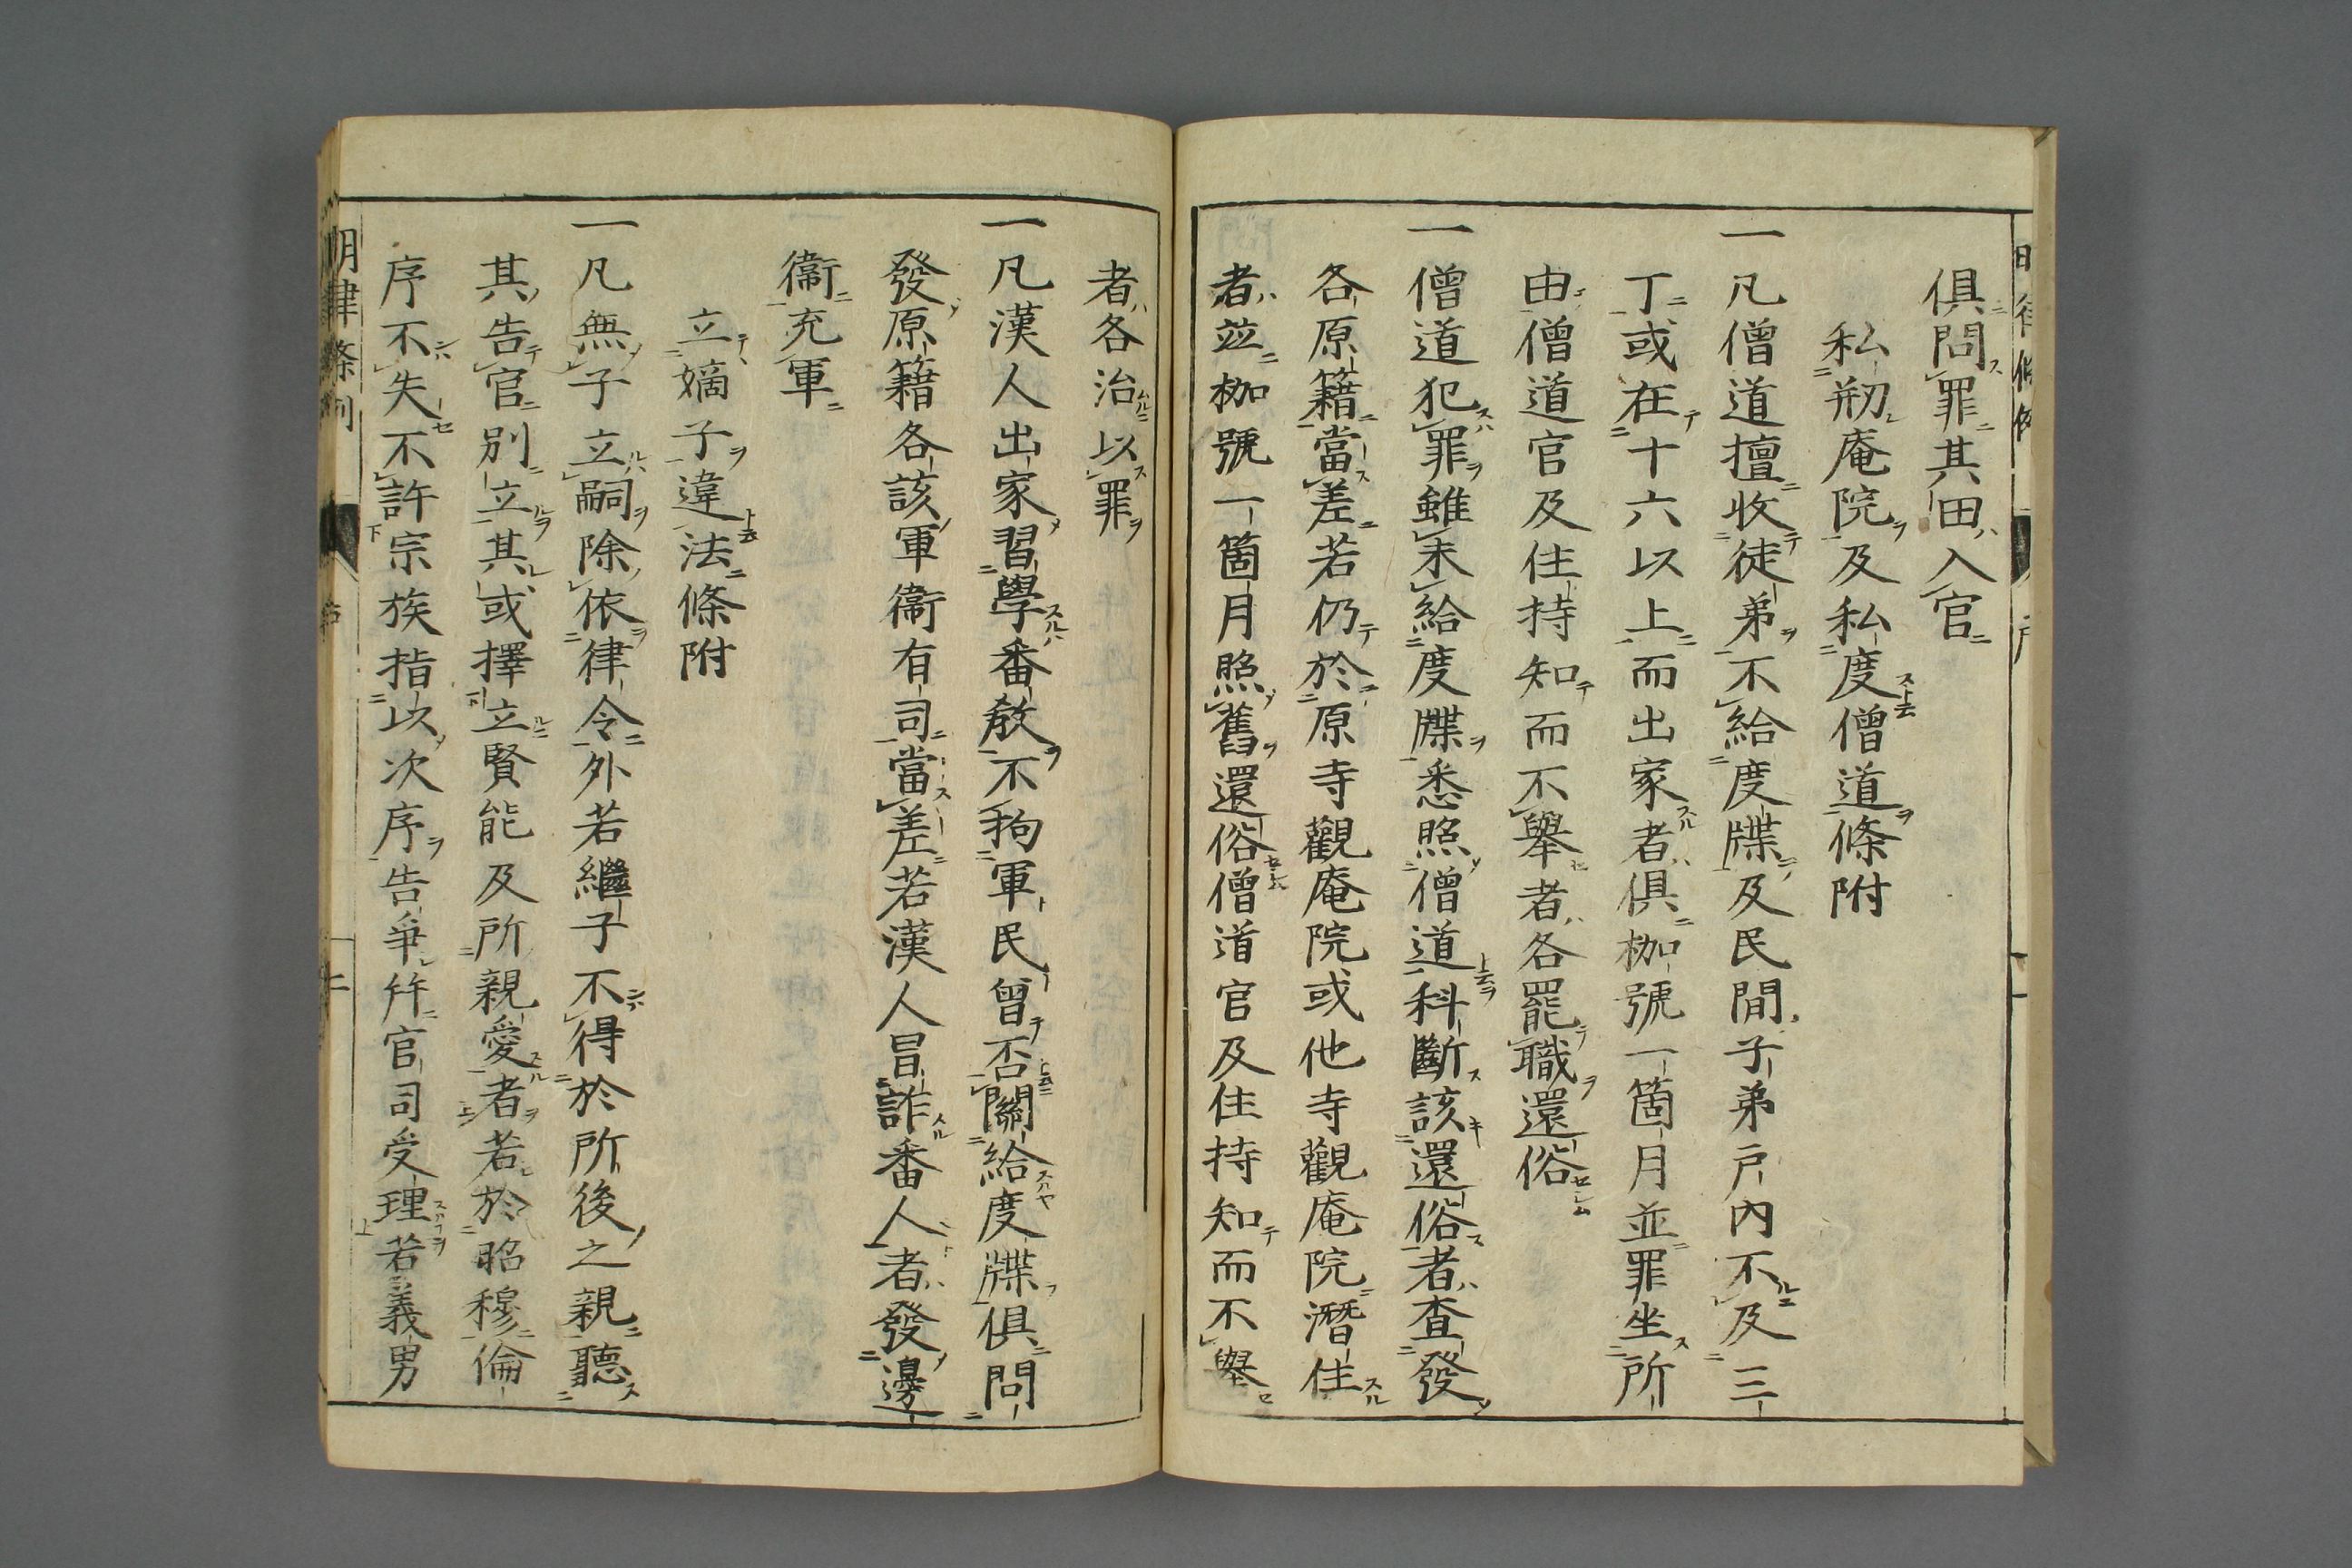 俱問罪其田入官
私剏庵院及私度僧道條附
一凡僧道擅收徒弟不給度牒及民間子弟戸內不及三
丁或在十六以上而出家者俱枷號一箇月並罪坐所
由僧道官及住持知而不舉者各罷職還俗
一僧道犯罪雖未給度牒悉照僧道科斷該還俗者查發
各原籍當差若仍於原寺觀庵院或他寺觀庵院潛住
者並枷號一箇月照舊還俗僧道官及住持知而不舉
者各治以罪
一凡漢人出家習學番教不拘軍民曾否關給度牒俱問
發原籍各該軍衞有司當差若漢人冒詐番人者發邊
衞充軍
立嫡子違法條附
一凡無子立嗣除依律令外若繼子不得於所後之親聽
其告官別立其或擇立賢能及所親愛者若於昭穆倫
序不失不許宗族指以次序告爭幷官司受理若義男
明律條例